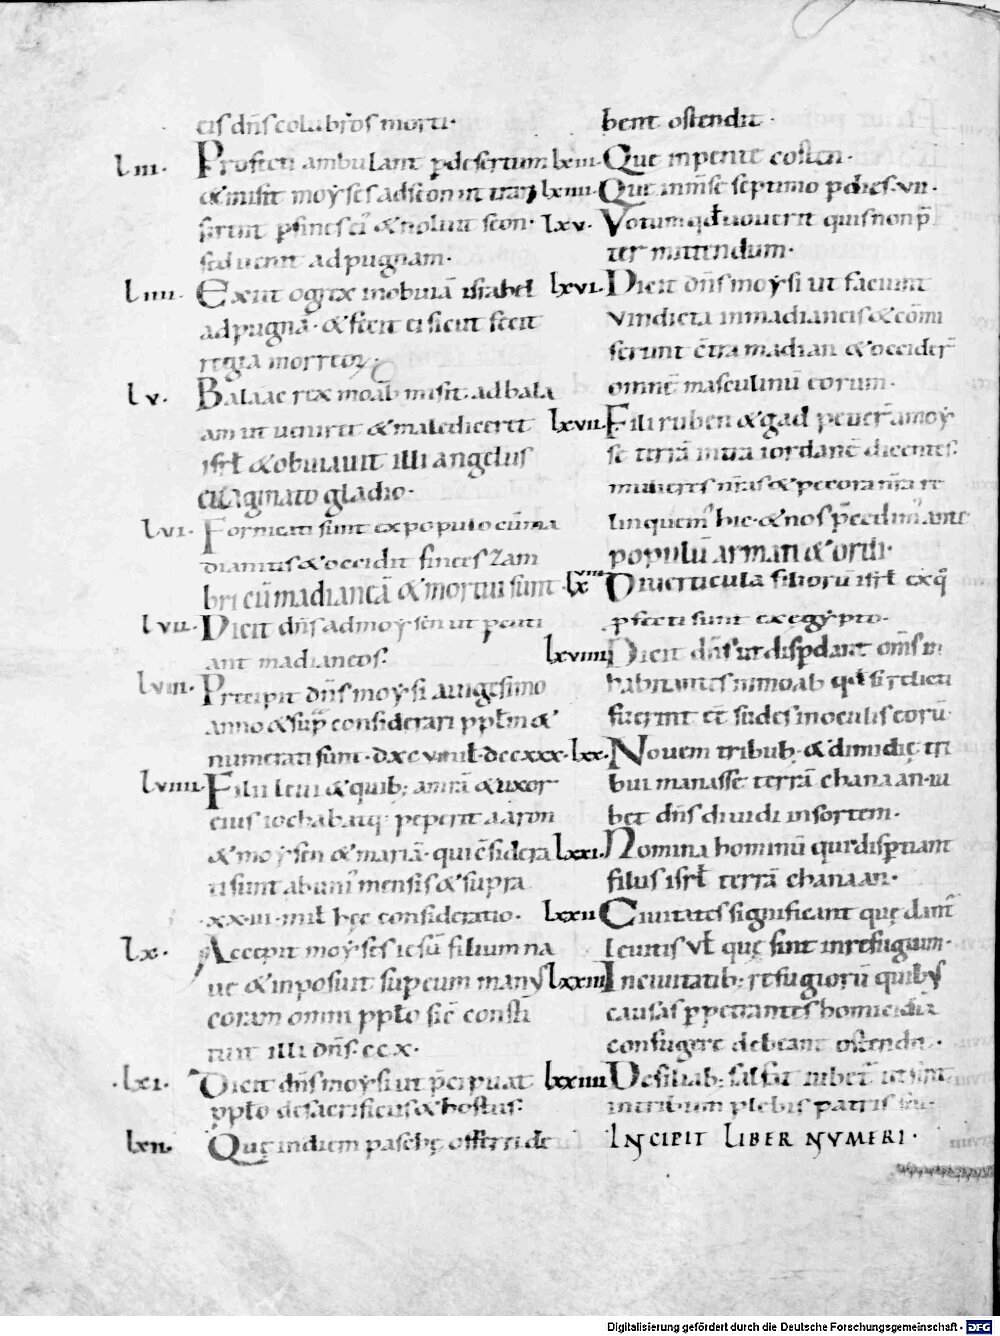 eis dn̄s colubros morti·
liii· Profecti ambulant p̱ desertum
& misit moyses ad seon ut tran
sirent p̱ fines ei' & noluit seon·
sed uenit ad pugnam·
liiii· Exiit og rex in obuiā israhel
ad pugnā· & fecit ei sicut fecit
regi amorreor̄·
lv· Balaac rex moab misit ad bala
am ut ueniret & malediceret
isrł & obuiauit illi angelus
euaginato gladio·
lvi· Fornicati sunt ex populo cū ma
dianitis & occidit finees zam
bri cū madianitā & mortui sunt
lvii· Dicit dn̄s ad moysen ut peniti
ant madianeos·
lviii· Precipit dn̄s moysi a uigesimo
anno & sup̱ considerari ppłm &
numerati sunt· dxcvi mił· dccxxx·
lviiii· Filii leui & quib; amrā & uxor
eius iochabaeq; peperit aaron
& moysen & mariā· qui c̄sidera
ti sunt ab uni' mensis & supra
·xxiii· mił hęc consideratio·
lx· Accepit moyses iesū filium na
ue & inposuit sup̱ eum manus
coram omni ppło sic̄ consti
tuit illi dn̄s· ccx·
·lxi· Dicit dn̄s moysi ut p̄cipiat
ppło de sacrificiis & hostiis·
lxii· Quę in diem paschę offerri de
bent ostendit·
lxiii· Que in pentecosten·
lxiiii· Que in m̄se septimo p̱ dies· vii·
lxv· Votum qđ uouerit quis non p̄
ter mittendum·
lxvi· Dicit dn̄s moysi ut faciant
vindicta in madianeis & com̄i
serunt c̄tra madian & occider̄
omnē masculinū eorum·
lxvii· Filii ruben & gad petier̄ a moy
se terrā intra iordanē dicentes·
mulieres nr̄as & pecora nr̄a re
linquem' hic· & nos p̄cedim' ante
populū armati & ordi·
lxviii Diuerticula filiorū isrł ex q̄
p̱fecti sunt ex ęgypto·
lxviiii Dicit dn̄s ut disp̱dant om̄s in
habitantes in moab qđ si relicti
fuerint er̄ sudes in oculis eorū·
lxx· Nouem tribub; & dimidię tri
bui manasse terrā chanaan· iu
bet dn̄s diuidi in sortem·
lxxi· Nomina hominū qui disp̱tiant
filiis isrł terrā chanaan·
lxxii Ciuitates significant quę dant'
leuitis vł quę sunt in refugium·
lxxiii In ciuitatib; refugiorū quibus
causas p̱petrantes homicidia
confugere debeant ostendit·
lxxiiii De filiab; salfat iubet ut sint
in tribum plebis patris sui·
INCIPIT LIBER NUMERI·
Digitalisierung gefördert durch die Deutsche Forschungsgemeinschaft - DFG